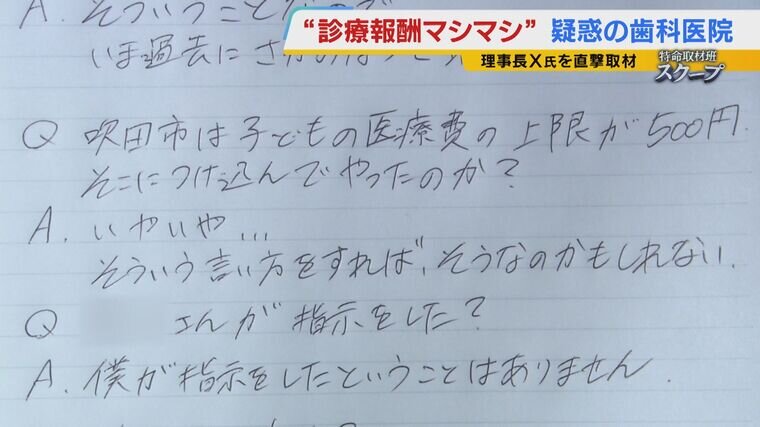 “診療報酬マシマシ” 疑惑の歯科医院
理事長X氏を直撃取材
特命取材班
スクープ
A. そういうことなので
いま過去にさかのぼって
Q 吹田市は子どもの医療費の上限が500円.
そこにつけ込んでやったのか?
A. いやいや...
そういう言い方をすれば、そうなのかもしれない.
Q さんが指示をした?
A. 僕が指示をしたということはありません.